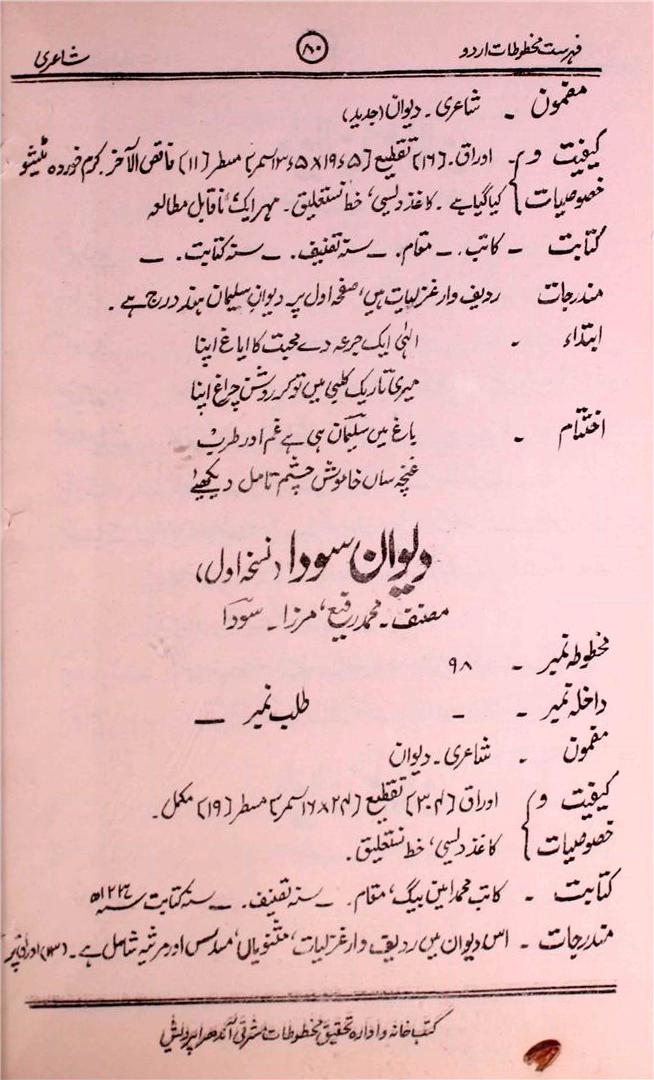 فہرست مخطوطات اردو ۸۰ شاعری
مضمون - شاعری - دیوان (جدید)
کیفیت و - اوراق - [۱۶] تقطیع [۱۹ء۵×۱۳ء۵ سمر] مسطر [۱۱] ناقص الآخر - کرم خوردہ ٹیشو
خصوصیات کیا گیا ہے - کاغذ دیسی، خط نستعلیق - مہر ایک ناقابل مطالعہ
کتابت - کاتب - مقام - سنہ تصنیف - سنہ کتابت -
مندرجات ردیف وار غزلیات ہیں، صفحہ اول پر دیوان سلیمان ہند درج ہے -
ابتداء - الٰہی ایک جرعہ دے محبت کا ایاغ اپنا
میری تاریک کلبی میں تو کر روشن چراغ اپنا
اختتام - باغ میں سلیمان ہی ہے غم اور طرب
غنچہ ساں خاموش چشم تامل دیکھیے
دیوان سودا (نسخہ اول)
مصنف - محمد رفیع، مرزا - سودا
مخطوطہ نمبر - ۹۸
داخلہ نمبر - - طلب نمبر -
مضمون - شاعری - دیوان
کیفیت و اوراق [۳۰۴] تقطیع [۲۴×۱۶ سمر] مسطر [۱۹] مکمل -
خصوصیات کاغذ دیسی، خط نستعلیق -
کتابت - کاتب محمد امین بیگ، مقام - سنہ تصنیف - سنہ کتابت سنہ
مندرجات - اس دیوان میں ردیف وار غزلیات، مثنویاں، مسدس اور مرثیہ شامل ہے - (۱۳) اوراق پر
کتب خانہ و ادارہ تحقیق مخطوطات مشرقی آندھرا پردیش